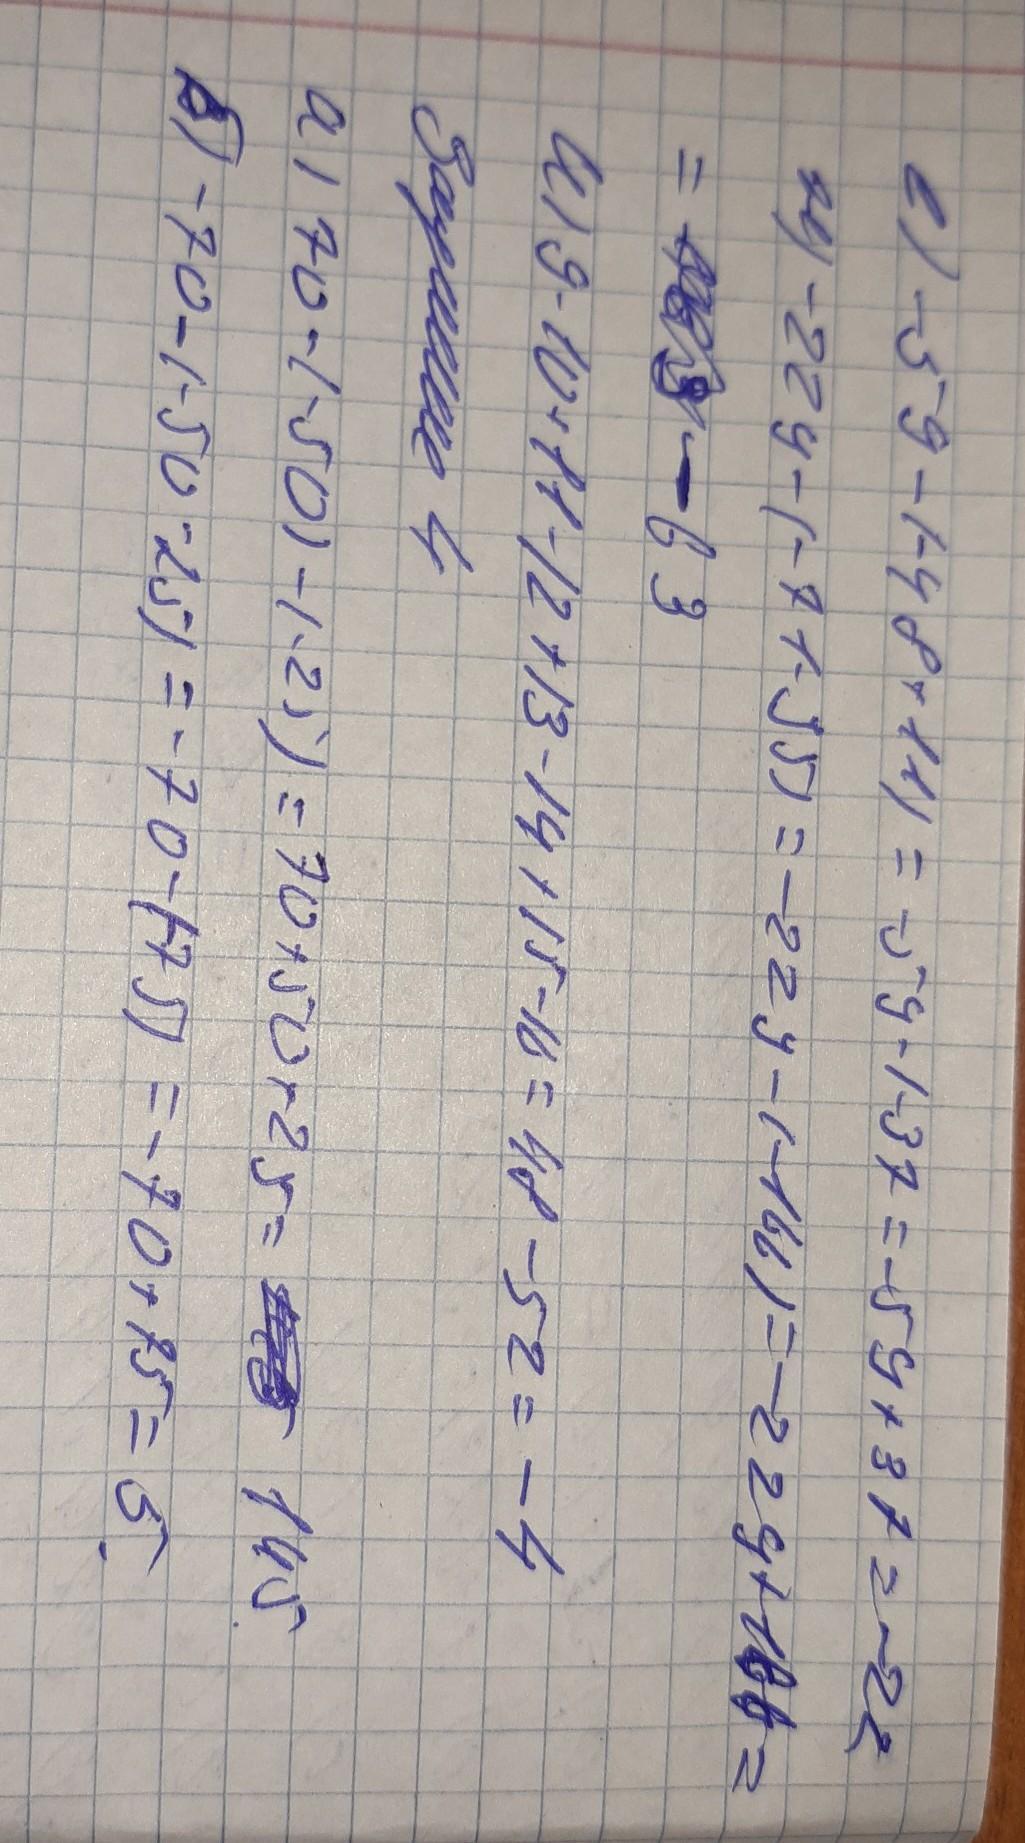 е) -59-(-48+11) = -59-(-37 = -59+37=-22
ж) -229-(-7+-55) = -229-(-166) = -229+166=
= -63
и) 9-10+11-12+13-14+15-16 = 48-52 = -4
Задание 4
а) 70-(-50)-(-25) = 70+50+25= 145
б) -70-(-50-25) = -70-(-75) = -70+75= 5.